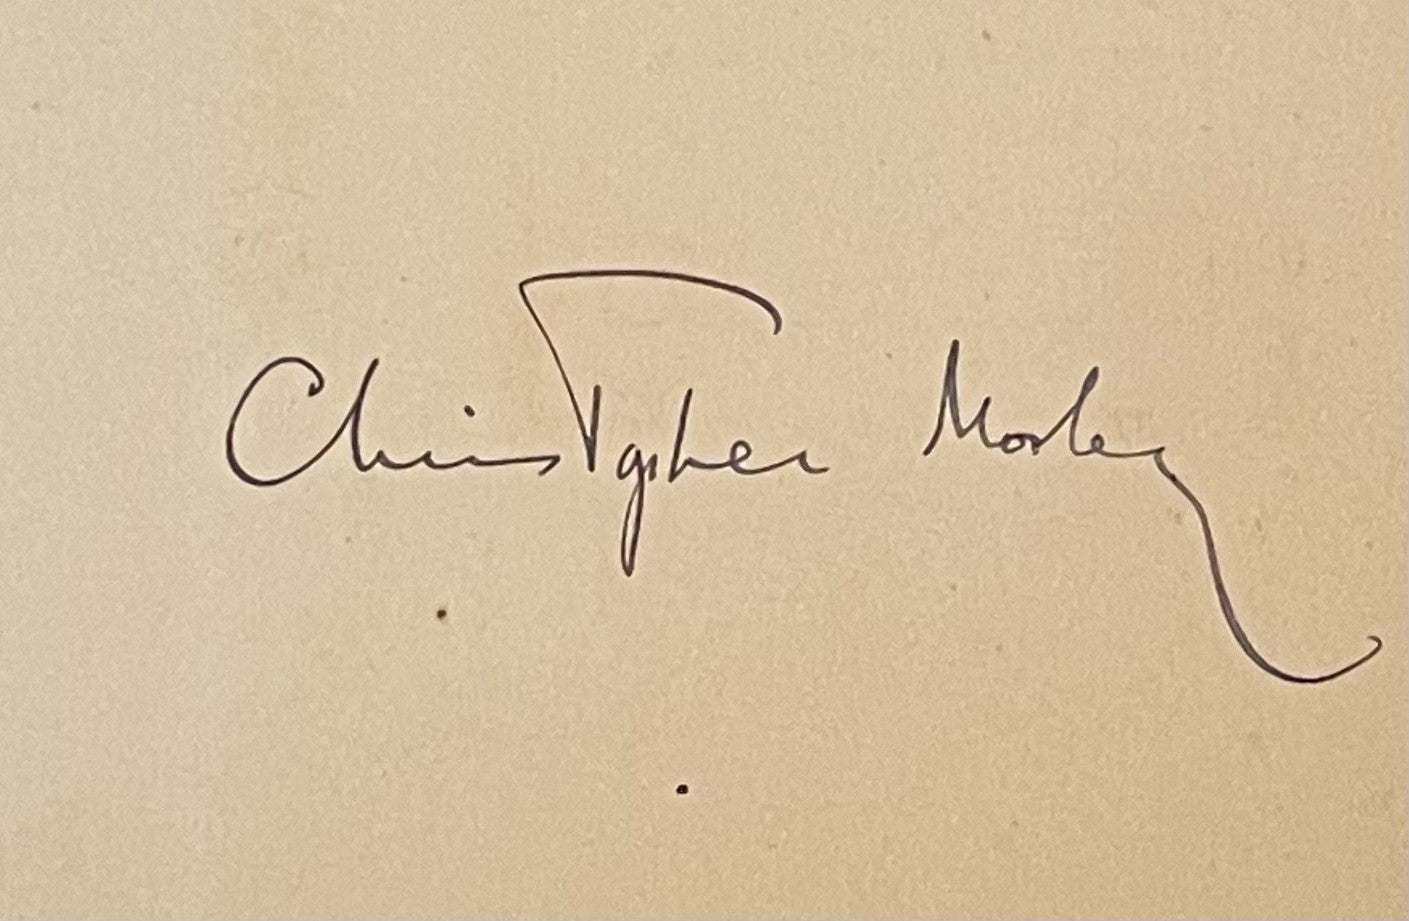 Christopher Morley